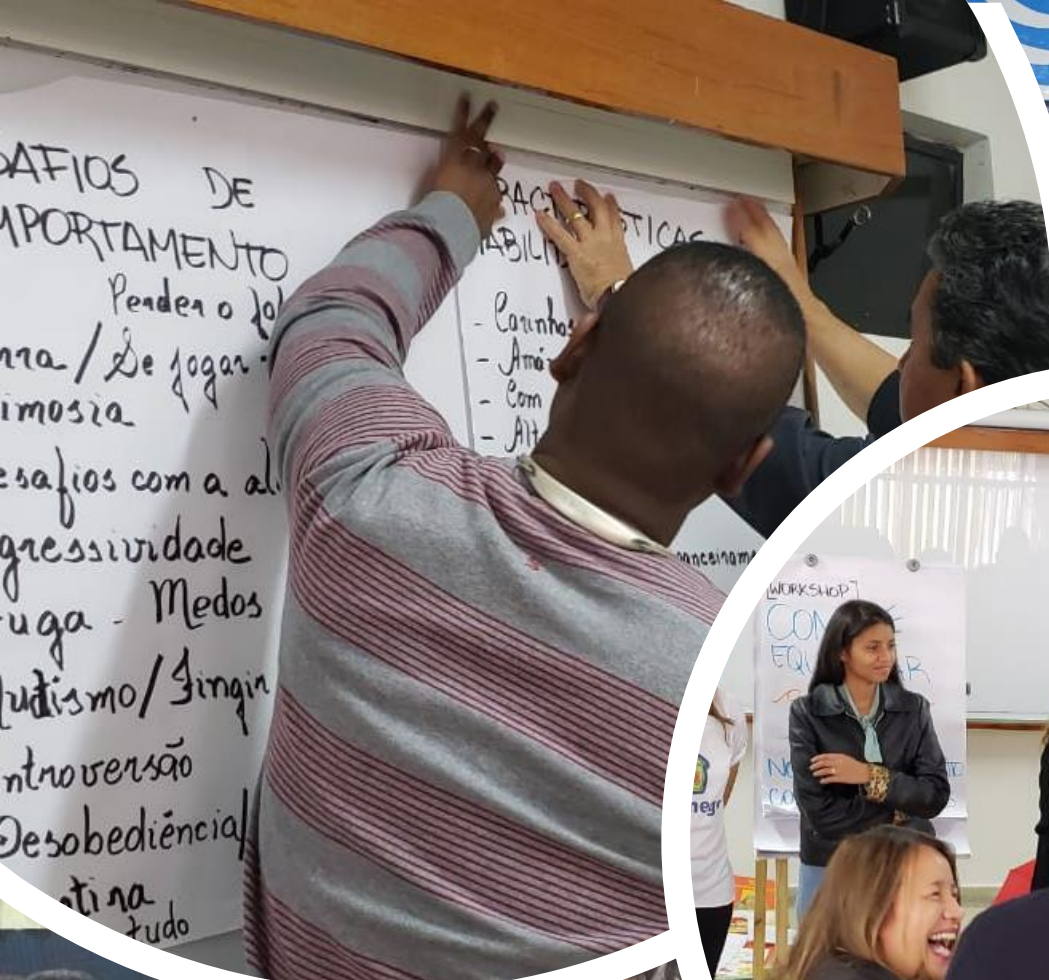 AFIOS DE
MPORTAMENTO
Perder o
rra/De jogar
imosia
esafios com a al
gressividade
uga - Medos
utismo/Fingir
ntroversão
Desobediência/
tina
tudo
RACT STICAS
ABILI
- Carinhos
- Amá
- Com
- Alt
anceiram
[WORKSHOP]
CO
EQU AR
NO TO
CO S
negr